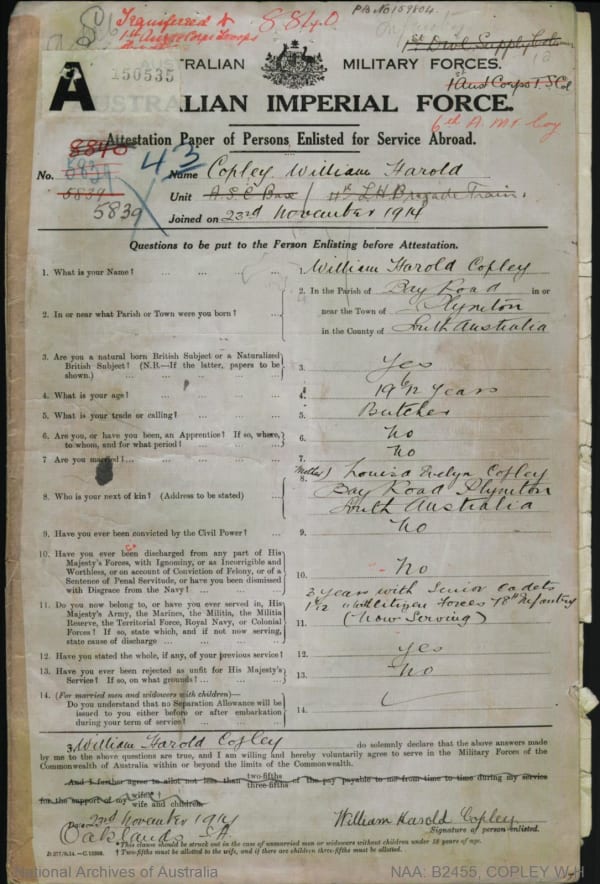 Transferred to
1st Anzac Corps Troops
8840
P.B. No 159804
1st Divl Supply Coln
1st Aust Corps T. S Col
AUSTRALIAN MILITARY FORCES.
A
150535
AUSTRALIAN IMPERIAL FORCE.
6th A. M.T. Coy
Attestation Paper of Persons Enlisted for Service Abroad.
8840
No. 5839
5839
43
Name Copley William Harold
Unit A.S.C Base / 4th L.H Brigade Train.
Joined on 23rd November 1914
Questions to be put to the Person Enlisting before Attestation.
1. What is your Name? ... ... ... William Harold Copley
2. In or near what Parish or Town were you born? ...
2. In the Parish of Bay Road in or
near the Town of Plymton
in the County of South Australia
3. Are you a natural born British Subject or a Naturalized
British Subject? (N.B.—If the latter, papers to be
shown.) ... ... ... ...
3. Yes
4. What is your age? ... ... ... 4. 19 6/12 years
5. What is your trade or calling? ... ... 5. Butcher
6. Are you, or have you been, an Apprentice? If so, where,
to whom, and for what period? ... ...
6. No
7. Are you married? ... ... ... 7. No
8. Who is your next of kin? (Address to be stated) ...
(Mother) Louisa Evelyn Copley
8. Bay Road Plymton
South Australia
9. Have you ever been convicted by the Civil Power? ... 9. No
10. Have you ever been discharged from any part of His
Majesty's Forces, with Ignominy, or as Incorrigible and
Worthless, or on account of Conviction of Felony, or of a
Sentence of Penal Servitude, or have you been dismissed
with Disgrace from the Navy? ... ... ...
10. No
11. Do you now belong to, or have you ever served in, His
Majesty's Army, the Marines, the Militia, the Militia
Reserve, the Territorial Force, Royal Navy, or Colonial
Forces? If so, state which, and if not now serving,
state cause of discharge ... ... ...
2 years with Senior Cadets
1 1/2 " with Citizen Forces 78th Infantry
11. (Now Serving)
12. Have you stated the whole, if any, of your previous service? 12. yes
13. Have you ever been rejected as unfit for His Majesty's
Service? If so, on what grounds? ... ...
13. No
14. (For married men and widowers with children)—
Do you understand that no Separation Allowance will be
issued to you either before or after embarkation
during your term of service? ... ... ...
14.
3. William Harold Copley do solemnly declare that the above answers made
by me to the above questions are true, and I am willing and hereby voluntarily agree to serve in the Military Forces of the
Commonwealth of Australia within or beyond the limits of the Commonwealth.
And I further agree to allot not less than two-fifths three-fifths of the pay payable to me from time to time during my service
for the support of my wife† wife and children
Date 22nd November 1914
Oaklands S.A.
William Harold Copley
Signature of person enlisted.
*This clause should be struck out in the case of unmarried men or widowers without children under 18 years of age.
† Two-fifths must be allotted to the wife, and if there are children three-fifths must be allotted.
National Archives of Australia
NAA: B2455, COPLEY W H